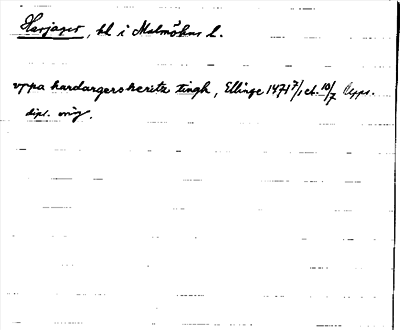 Harjager, hd i Malmöhus l.
vppa hardargers heritz tingh, Ellinge 1471 7/1 et. 10/7 Cop.
dipl. orig.